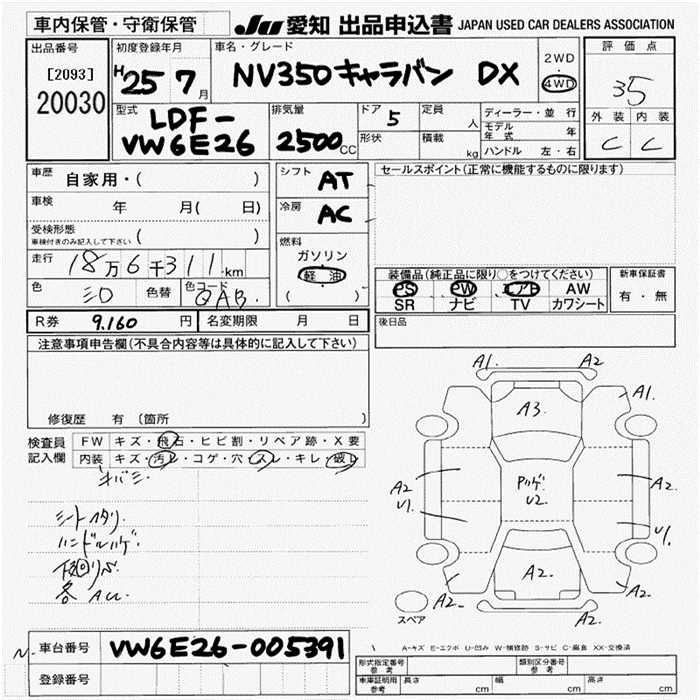 車内保管・守衛保管
JU 愛知 出品申込書 JAPAN USED CAR DEALERS ASSOCIATION
出品番号
[2093]
20030
初度登録年月
H25 7月
車名・グレード
NV350キャラバン DX
2WD
・
4WD
評価点
35
外装 内装
C C
型式
LDF-
VW6E26
排気量
2500CC
ドア 5
形状
定員
人
積載
kg
ディーラー・並行
モデル年式 年
ハンドル 左・右
車歴
自家用・( )
車検
年 月( 日)
受検形態
車検付きのみ記入して下さい ( )
走行
18万6千311km
色
色替
色コード
QAB.
シフト
AT
冷房
AC
燃料
ガソリン
・
軽油
( )
セールスポイント(正常に機能するものに限ります)
装備品(純正品に限り○をつけてください)
PS PW エアB AW
SR ナビ TV カワシート
新車保証書
有・無
R券 9.160 円
名変期限 月 日
後日品
注意事項申告欄(不具合内容等は具体的に記入して下さい)
修復歴 有 (箇所 )
検査員
記入欄
FW キズ・飛石・ヒビ割・リペア跡・X要
内装 キズ・汚レ・コゲ・穴・スレ・キレ・破レ
キバミ.
シートヘタリ.
ハンドルハゲ.
下回りS.
各AU.
A1. A2
A3. A1.
A2
U1
Pハゲ
U2.
A2.
U1.
A2.
A2. A2.
A2-
スペア
車台番号
VW6E26-005391
登録番号
A-キズ E-エクボ U-凹み W-補修跡 S-サビ C-腐食 XX-交換済
形式指定番号
参考
類別区分番号
参考
車庫証明用
参考
長さ cm
幅 cm
高さ cm